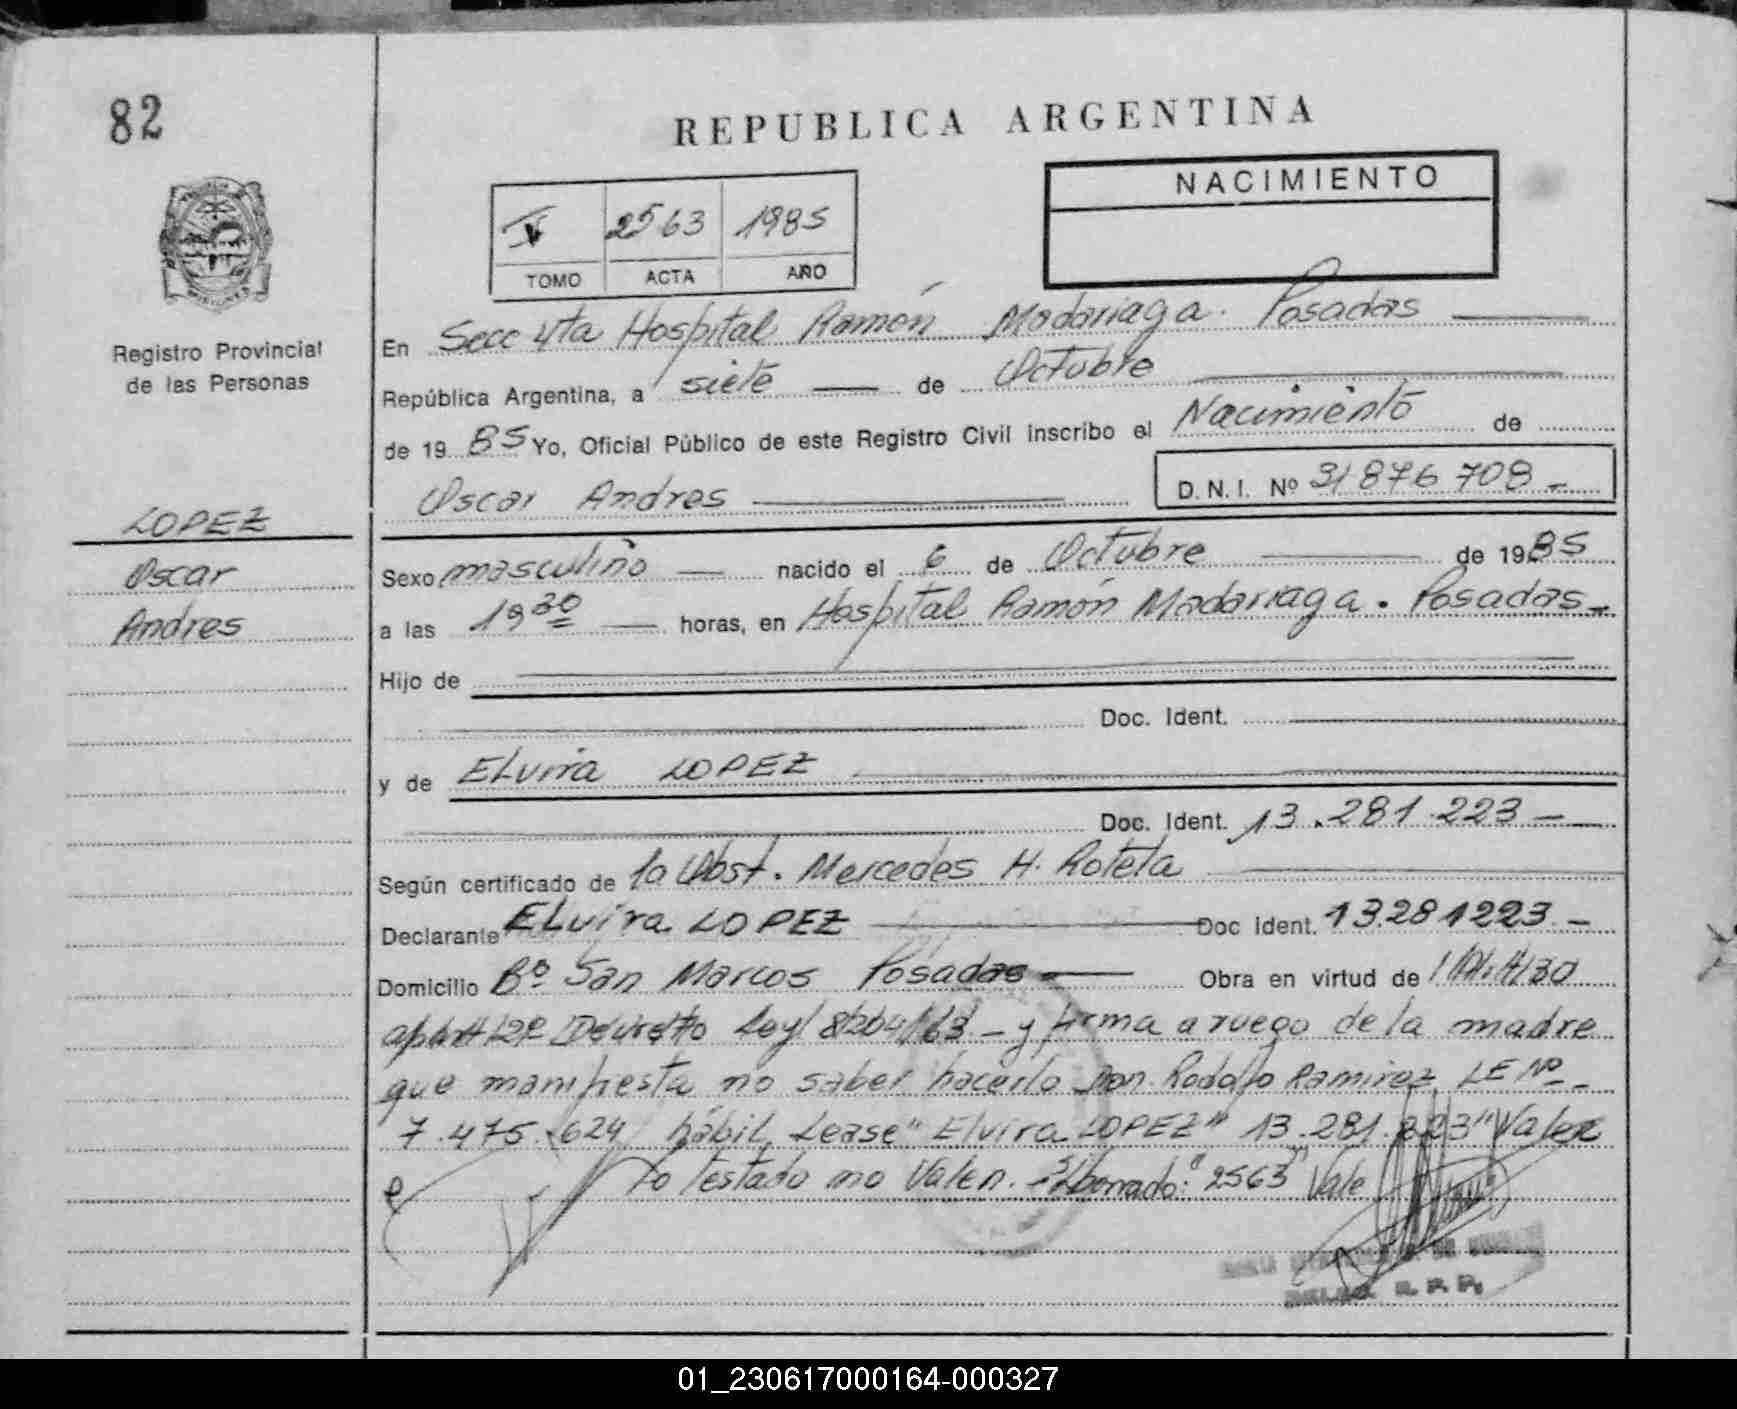 82
REPUBLICA ARGENTINA
NACIMIENTO
2563 1985
TOMO ACTA AÑO
Registro Provincial
de las Personas
En Secc 4ta Hospital Ramón Madariaga. Posadas
República Argentina, a siete de Octubre
de 1985 Yo, Oficial Público de este Registro Civil inscribo el Nacimiento de
Oscar Andres D.N.I. Nº 31876708-
LOPEZ
Oscar
Andres
Sexo masculino nacido el 6 de Octubre de 1985
a las 19 30 horas, en Hospital Ramón Madariaga. Posadas-
Hijo de
Doc. Ident.
y de Elvira LOPEZ
Doc. Ident. 13.281.223-
Según certificado de la Obst. Mercedes H. Roteta
Declarante Elvira LOPEZ Doc Ident. 13.281223.-
Domicilio Bº San Marcos Posadas Obra en virtud de
Decreto Ley 8204/63.- y firma a ruego de la madre
que manifiesta no saber hacerlo Don Rodolfo Ramirez LE Nº-
7.475.624 hábil. Lease "Elvira LOPEZ" 13.281.223" Valen
Lo testado no Valen.- S/borrado: "2563" Vale
R.P.P.
01_230617000164-000327